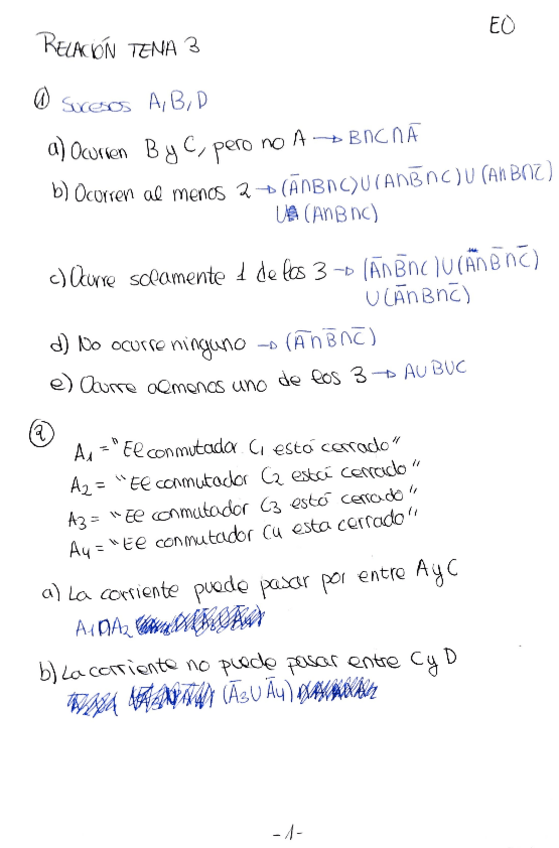 EO
RELACIÓN TEMA 3
① Sucesos A, B, D
a) Ocurren B y C, pero no A → B∩C∩A̅
b) Ocurren al menos 2 → (A̅∩B∩C)∪(A∩B̅∩C)∪(A∩B∩C̅)
∪ (A∩B∩C)
c) Ocurre solamente 1 de los 3 → (A̅∩B̅∩C)∪(A∩B̅∩C̅)
∪(A̅∩B∩C̅)
d) No ocurre ninguno → (A̅∩B̅∩C̅)
e) Ocurre al menos uno de los 3 → A∪B∪C
②
A₁ = "El conmutador C₁ está cerrado"
A₂ = "El conmutador C₂ está cerrado"
A₃ = "El conmutador C₃ está cerrado"
A₄ = "El conmutador C₄ esta cerrado"
a) La corriente puede pasar por entre A y C
A₁∩A₂
b) La corriente no puede pasar entre C y D
(A̅₃∪A̅₄)
-1-